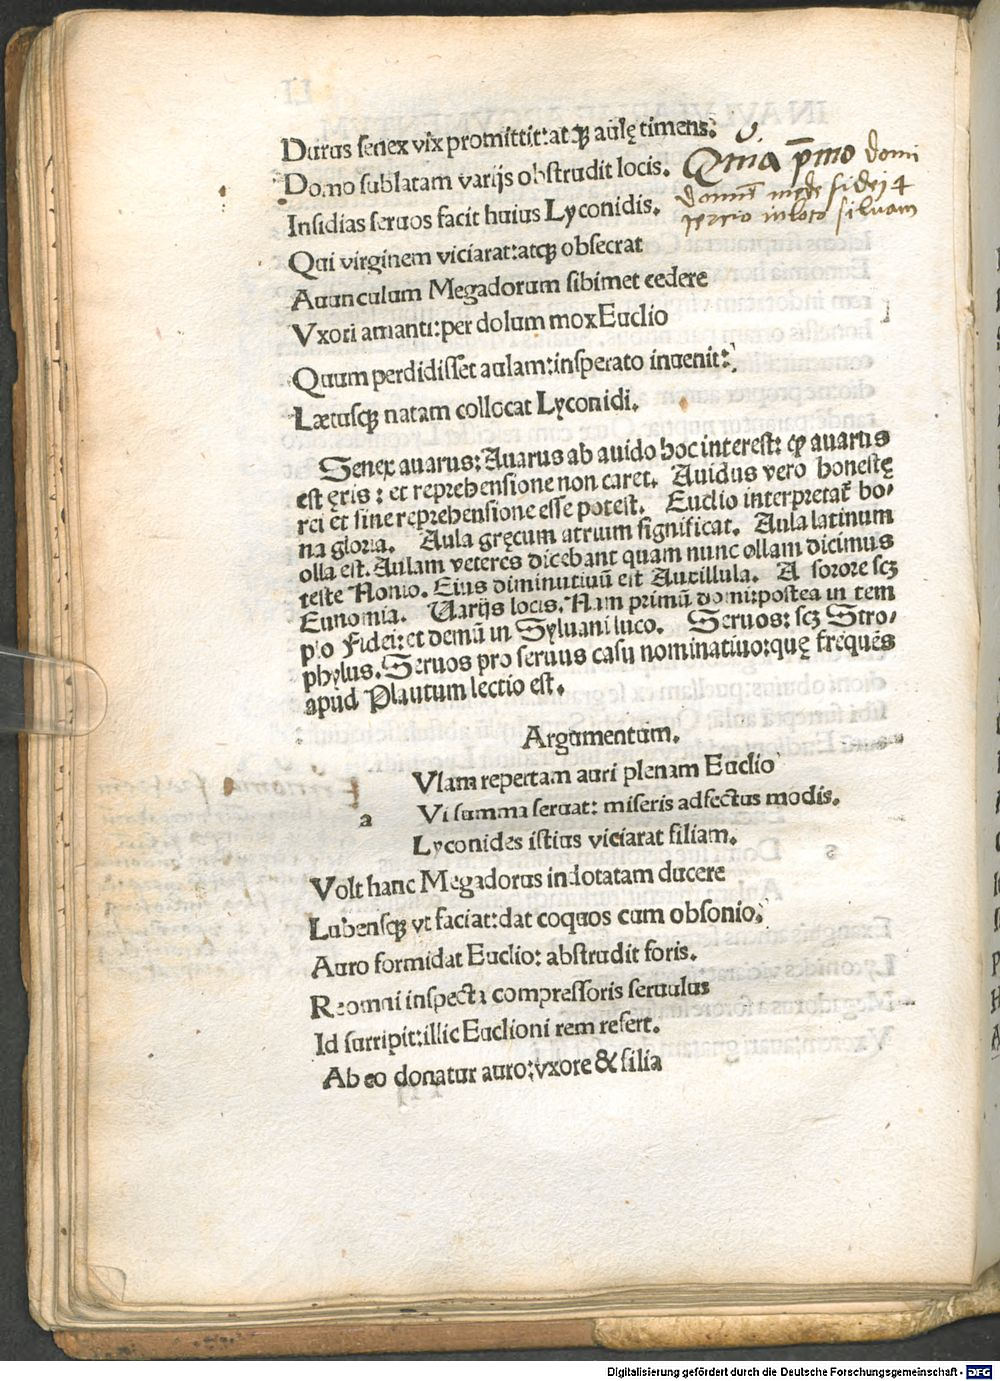 Durus senex vix promittit: atqꝫ aulę timens:
Domo sublatam varijs obstrudit locis.
Insidias seruos facit huius Lyconidis.
Qui virginem viciarat: atqꝫ obsecrat
Auunculum Megadorum sibimet cedere
Vxori amanti: per dolum mox Euclio
Quum perdidisset aulam: insperato inuenit:
Lætusqꝫ natam collocat Lyconidi.
Quia p̄mo domi
Senex auarus: Auarus ab auido hoc interest: ꝙ auarus
est ęris: et reprehensione non caret. Auidus vero honestę
rei et sine reprehensione esse potest. Euclio interpretat̄ bo-
na gloria. Aula gręcum atrium significat. Aula latinum
olla est. Aulam veteres dicebant quam nunc ollam dicimus
teste Nonio. Eius diminutiuū est Auxillula. A sorore scꝫ
Eunomia. Varijs locis. Nam primū domi: postea in tem
plo Fidei: et demū in Syluani luco. Seruos: scꝫ Stro-
phylus. Seruos pro seruus casu nominatiuo: quę frequēs
apud Plautum lectio est.
Argumentum.
Vlam repertam auri plenam Euclio
a Vi summa seruat: miseris adfectus modis.
Lyconides istius viciarat filiam.
Volt hanc Megadorus indotatam ducere
Lubensqꝫ vt faciat: dat coquos cum obsonio.
Auro formidat Euclio: abstrudit foris.
Re omni inspecta compressoris seruulus
Id surripit: illic Euclioni rem refert.
Ab eo donatur auro: vxore & filia
Digitalisierung gefördert durch die Deutsche Forschungsgemeinschaft - DFG